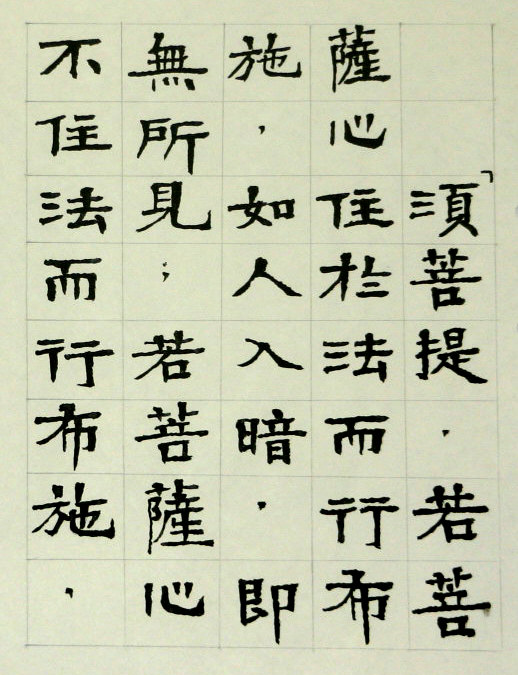 「須菩提，若菩
薩心住於法而行布
施，如人入暗，即
無所見；若菩薩心
不住法而行布施，